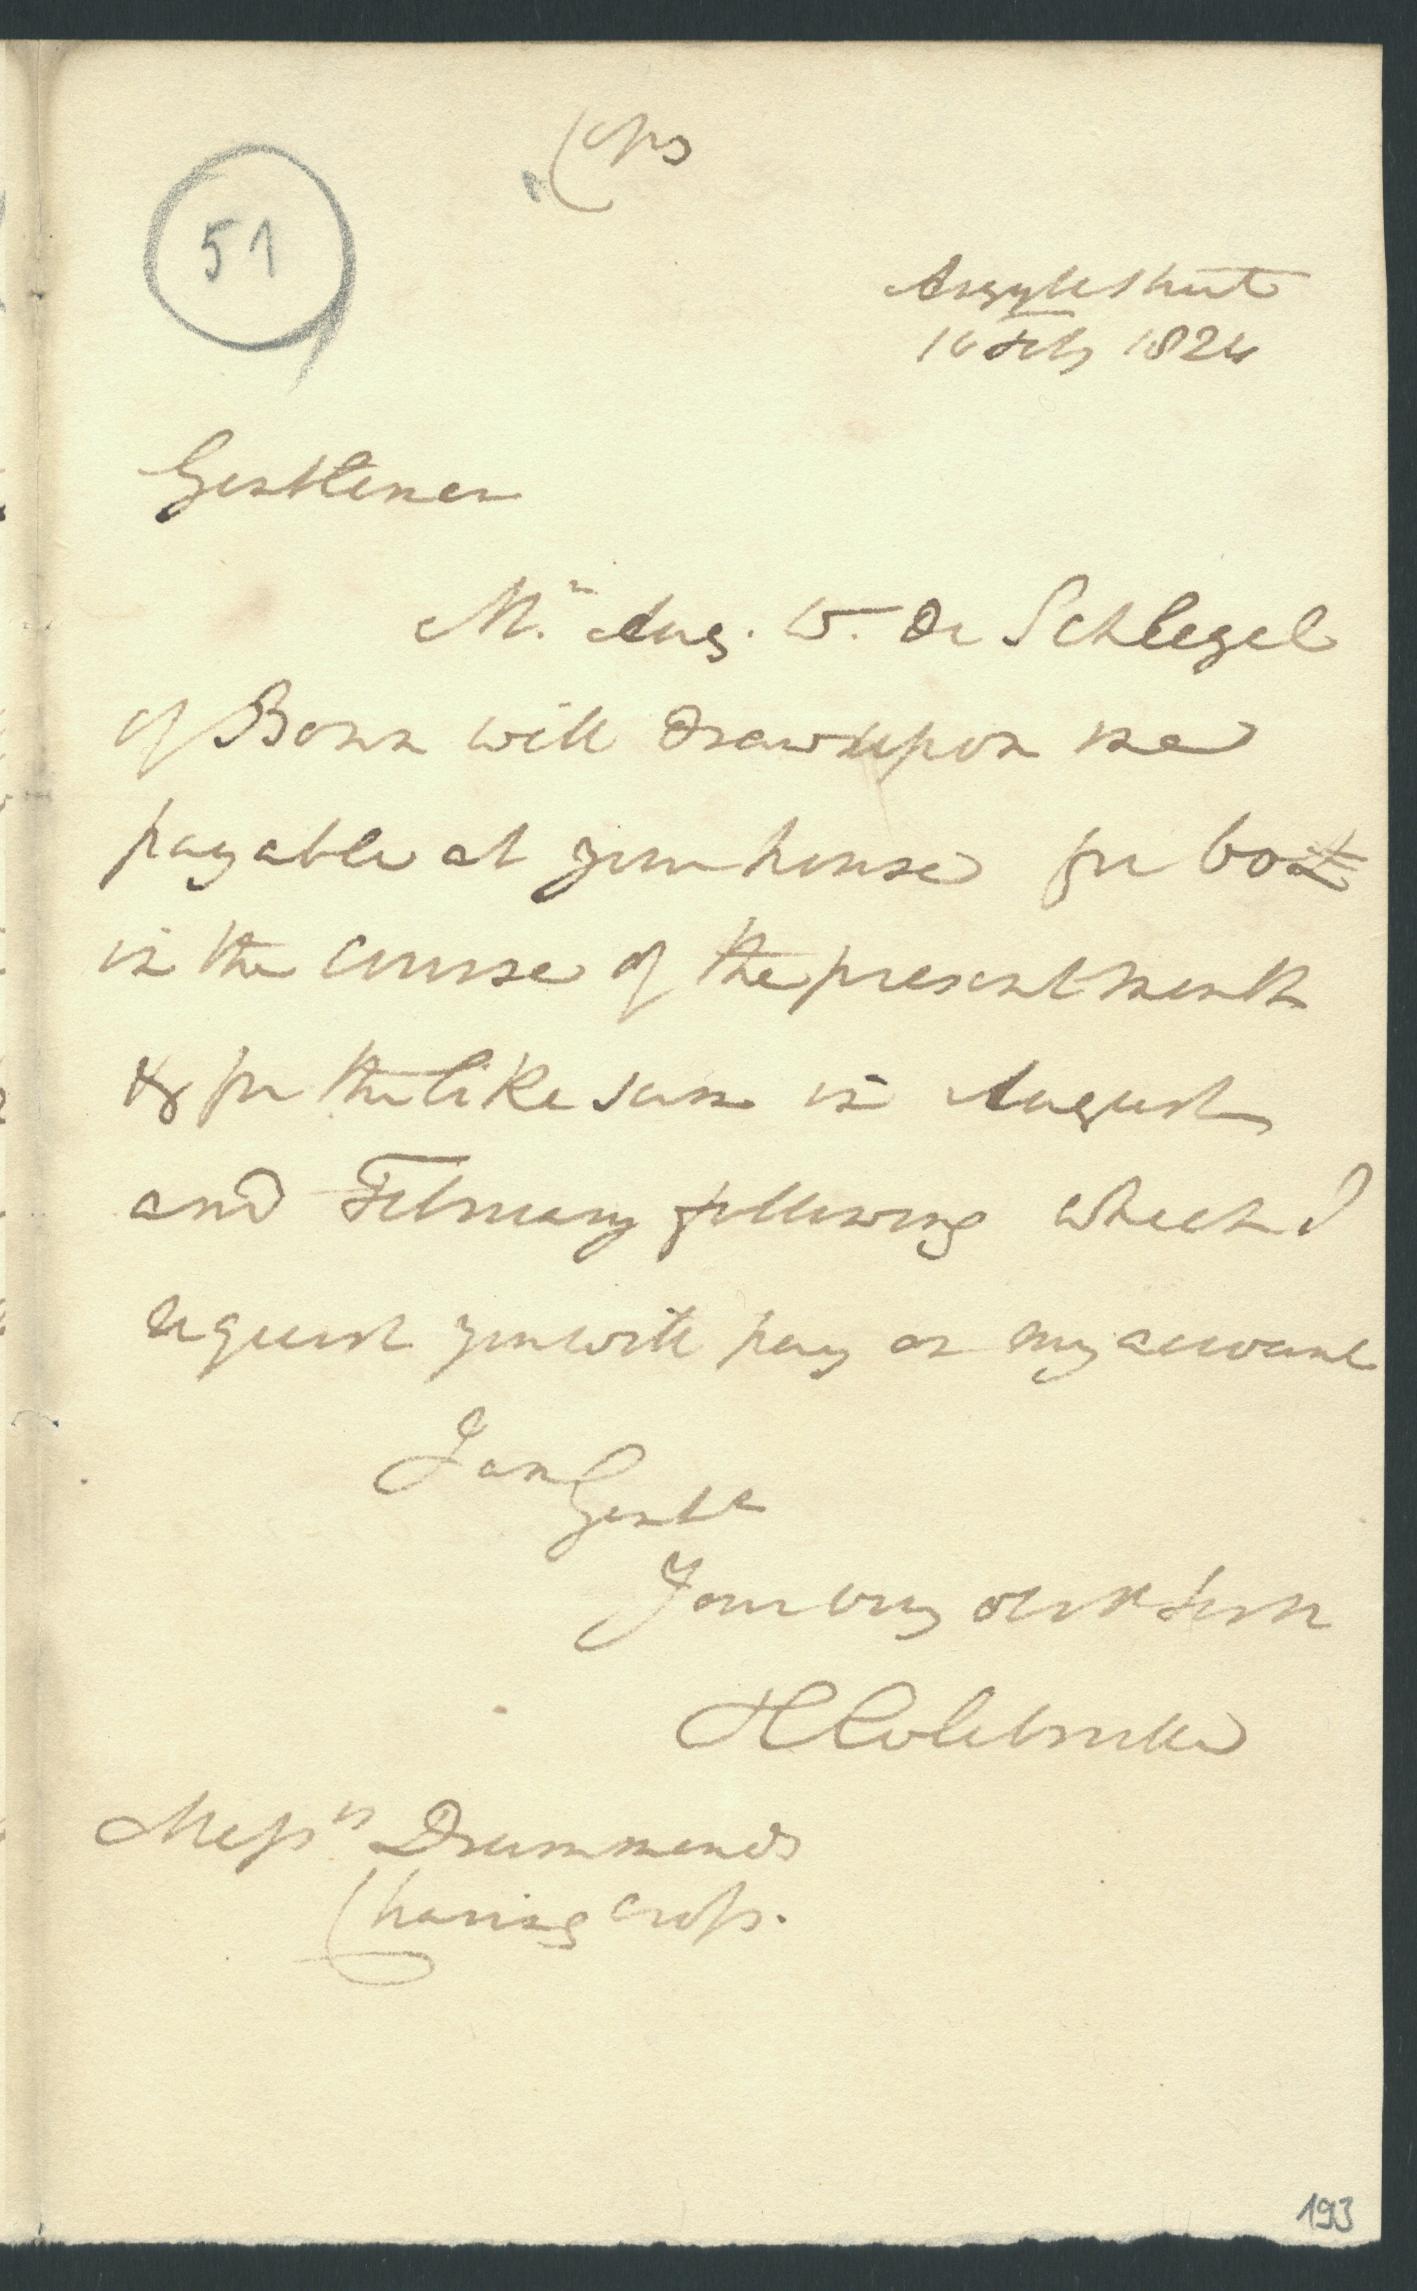 Copy
51
Argyle Street
16 Feby 1824
Gentlemen
Mr. Aug. W. De Schlegel
of Bonn will draw upon me
payable at your house for 60£
in the course of the present month
& for the like sum in August
and February following which I
request you will pay on my account
I am
Gentn
Your very obt
H Colebrooke
Messrs Drummonds
Charing Cross.
193